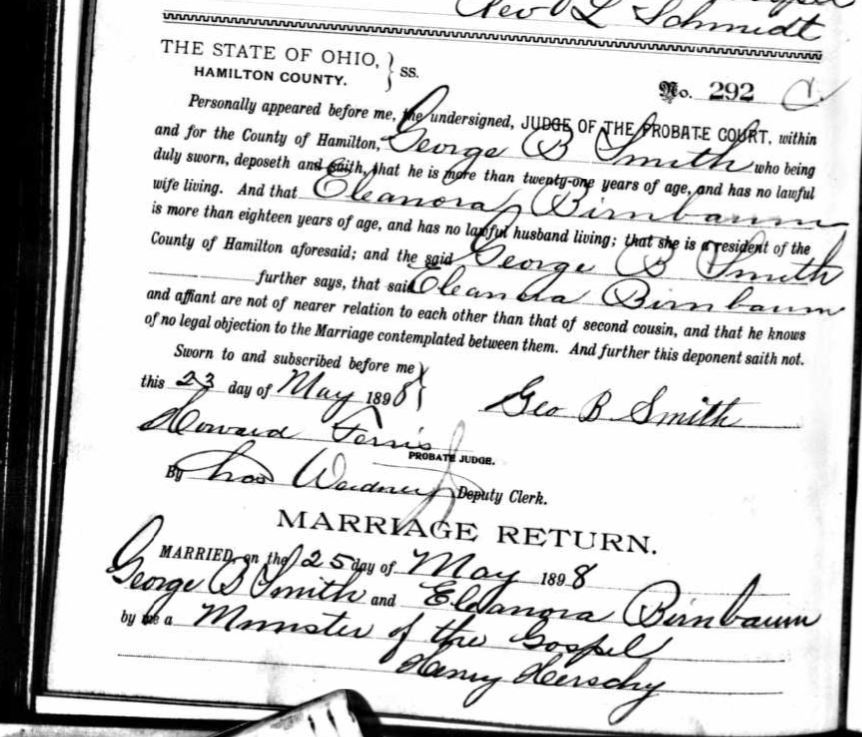 Rev L Schmidt
THE STATE OF OHIO,
HAMILTON COUNTY. } SS.
No. 292
Personally appeared before me, the undersigned, JUDGE OF THE PROBATE COURT, within
and for the County of Hamilton, George B Smith who being
duly sworn, deposeth and saith, that he is more than twenty-one years of age, and has no lawful
wife living. And that Eleanora Birnbaum
is more than eighteen years of age, and has no lawful husband living; that she is a resident of the
County of Hamilton aforesaid; and the said George B Smith
further says, that said Eleanora Birnbaum
and affiant are not of nearer relation to each other than that of second cousin, and that he knows
of no legal objection to the Marriage contemplated between them. And further this deponent saith not.
Sworn to and subscribed before me }
this 23 day of May 1898
Geo B Smith
Howard Ferris
PROBATE JUDGE.
By Chas Weidner Jr Deputy Clerk.
MARRIAGE RETURN.
MARRIED, on the 25 day of May 1898
George B Smith and Eleanora Birnbaum
by me a Minister of the Gospel
Henry Herschy